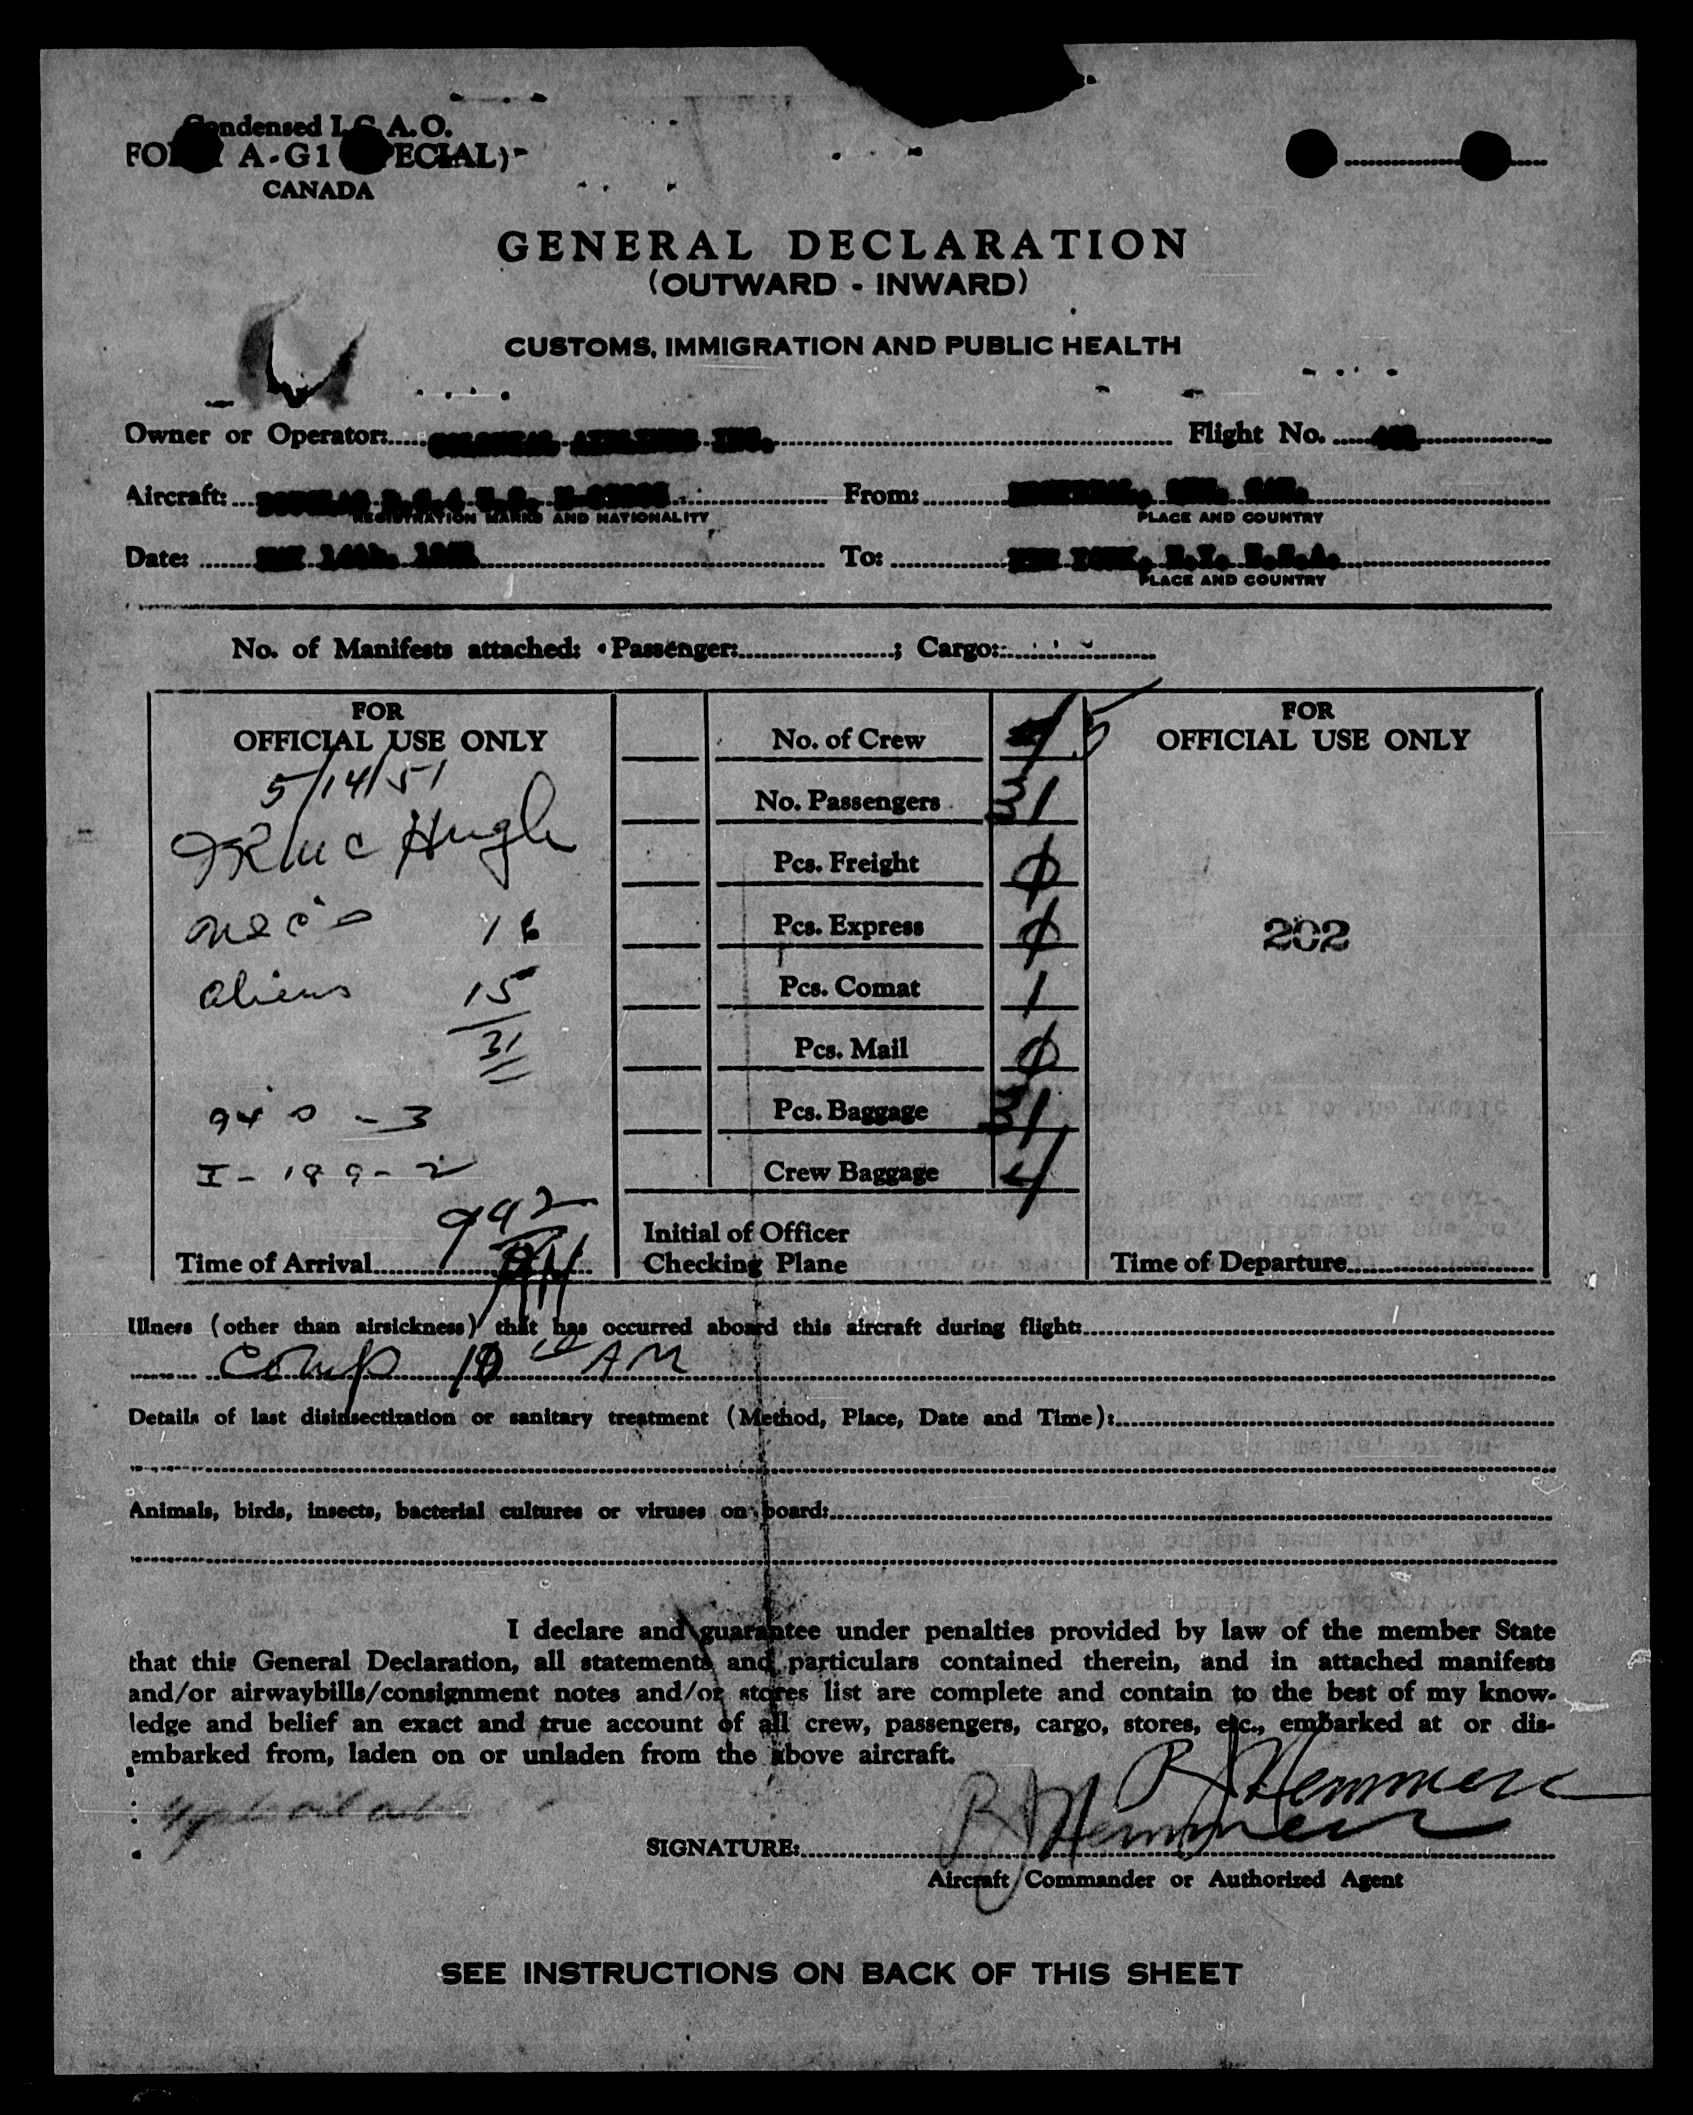 Condensed I.C.A.O.
FORM A-G1 (SPECIAL)
CANADA
GENERAL DECLARATION
(OUTWARD - INWARD)
CUSTOMS, IMMIGRATION AND PUBLIC HEALTH
Owner or Operator: COLONIAL AIRLINES INC. Flight No.
Aircraft: DOUGLAS D.C.4 U.S. From: MONTREAL, QUE. CAN.
REGISTRATION MARKS AND NATIONALITY PLACE AND COUNTRY
Date: MAY 14th. 1951 To: NEW YORK, N.Y. U.S.A.
PLACE AND COUNTRY
No. of Manifests attached: Passenger: ; Cargo:
FOR OFFICIAL USE ONLY
5/14/51
McHugh
16
aliens 15
31
- 3
I - 189 - 2
942
Time of Arrival
No. of Crew 4 5
No. Passengers 31
Pcs. Freight 0
Pcs. Express 0
Pcs. Comat 1
Pcs. Mail 0
Pcs. Baggage 31
Crew Baggage 4
Initial of Officer
Checking Plane
FOR OFFICIAL USE ONLY
202
Time of Departure
Illness (other than airsickness) that has occurred aboard this aircraft during flight:
Comp 10 10 AM
Details of last disinsectization or sanitary treatment (Method, Place, Date and Time):
Animals, birds, insects, bacterial cultures or viruses on board:
I declare and guarantee under penalties provided by law of the member State
that this General Declaration, all statements and particulars contained therein, and in attached manifests
and/or airwaybills/consignment notes and/or stores list are complete and contain to the best of my know-
ledge and belief an exact and true account of all crew, passengers, cargo, stores, etc., embarked at or dis-
embarked from, laden on or unladen from the above aircraft.
R J Hemmen
SIGNATURE: R J Hemmen
Aircraft Commander or Authorized Agent
SEE INSTRUCTIONS ON BACK OF THIS SHEET